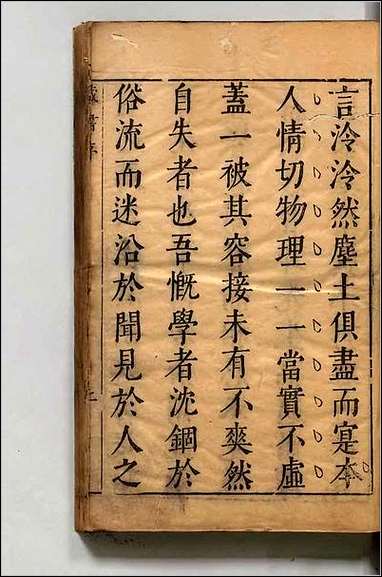 言泠泠然塵土俱盡而寔本
人情切物理一一當實不虛
蓋一被其容接未有不爽然
自失者也吾慨學者沈錮於
俗流而迷沿於聞見於人之